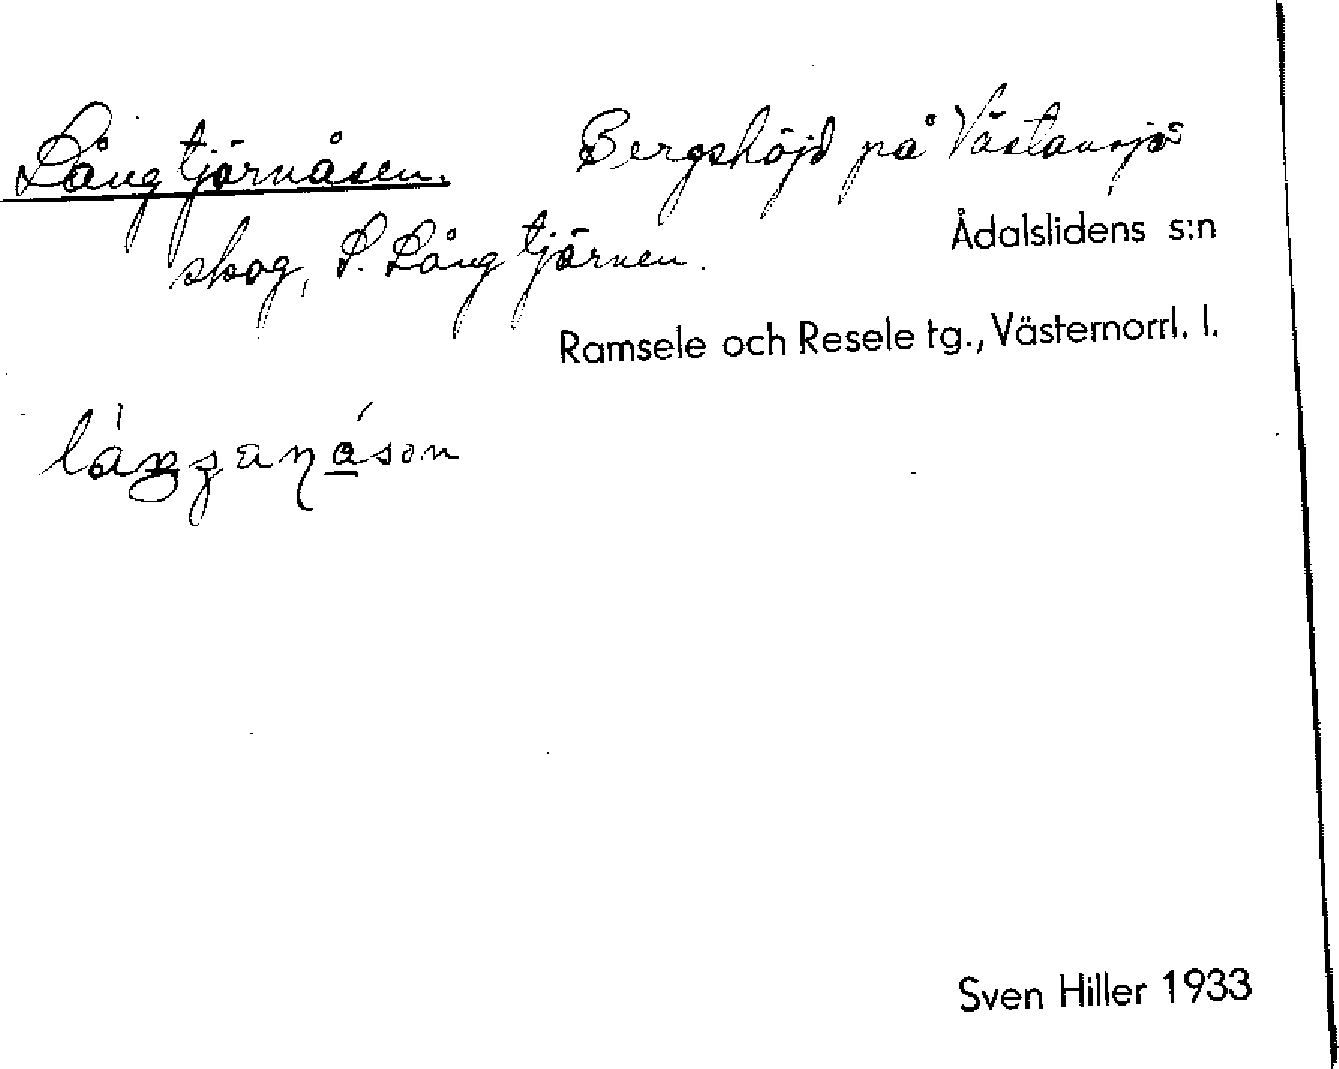 Långtjärnåsen. Bergshöjd på Västansjös
Ådalslidens s:n
skog, S. Långtjärnen.
Ramsele och Resele tg., Västernorrl. l.
Sven Hiller 1933